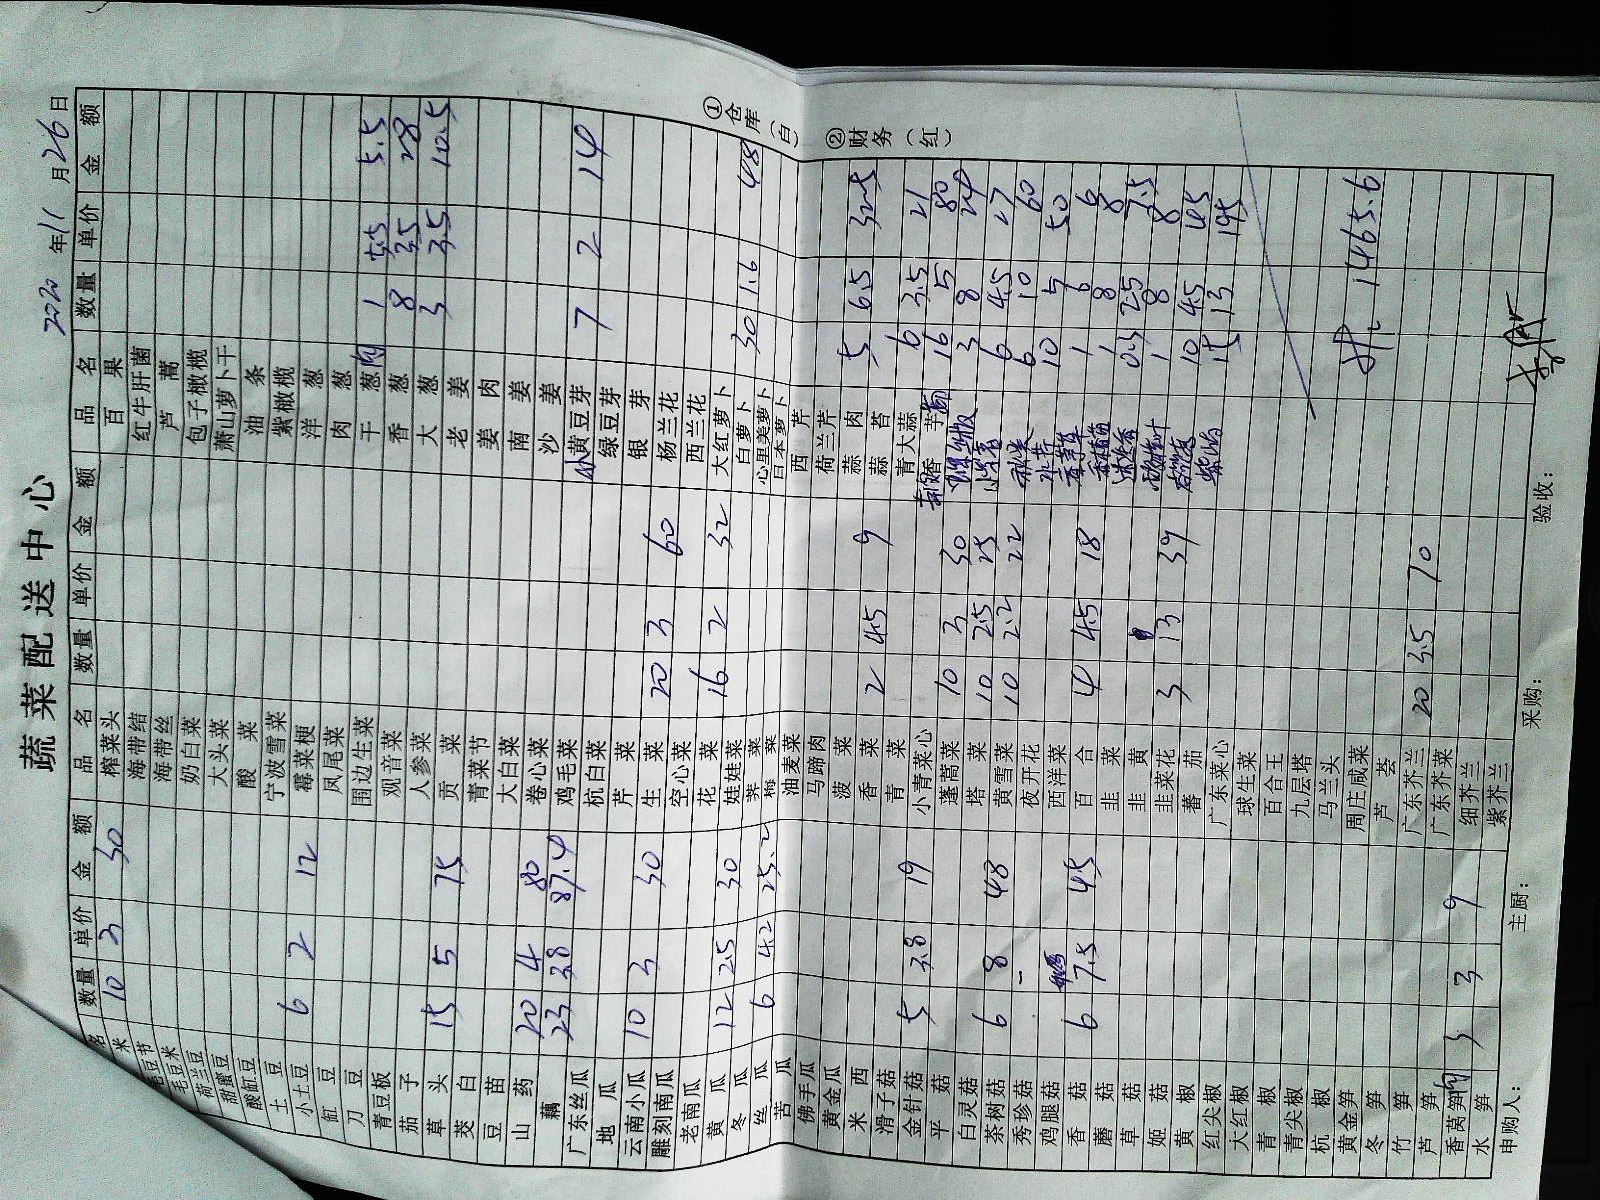 蔬菜配送中心
2020年11月26日
名 数量 单价 金额
米 10 3 30
毛豆节
毛豆米
荷兰豆
甜蜜豆
酸豇豆
土豆
小土豆 6 2 12
豇豆
刀豆
青豆板
茄子
草头 15 5 75
茭白
豆苗
山药 20 4 80
藕 23 3.8 87.4
广东丝瓜
地瓜
云南小瓜 10 3 30
雕刻南瓜
老南瓜
黄瓜 12 2.5 30
冬瓜
丝瓜 6 4.2 25.2
苦瓜
佛手瓜
黄金瓜
米西
滑子菇
金针菇 5 3.8 19
平菇
白灵菇
茶树菇 6 8 48
秀珍菇
鸡腿菇
香菇 6 7.5 45
蘑菇
草菇
姬菇
黄椒
红尖椒
大红椒
青椒
青尖椒
杭椒
黄金笋
冬笋
竹笋
芦笋
香莴笋肉 3 3 9
水笋
品名 数量 单价 金额
榨菜头
海带结
海带丝
奶白菜
大头菜
酸菜
宁波雪菜
霉菜梗
凤尾菜
围边生菜
观音菜
人参菜
贡菜
青菜节
大白菜
卷心菜
鸡毛菜
杭白菜
芹菜
生菜 20 3 60
空心菜
花菜 16 2 32
娃娃菜
荠菜
梅菜
油麦菜
马蹄肉
菠菜
香菜 2 4.5 9
青菜
小青菜心
蓬蒿菜 10 3 30
塔菜 10 2.5 25
黄雪菜 10 2.2 22
夜开花
西洋菜
百合 4 4.5 18
韭菜
韭黄
韭菜花 3 13 39
蕃茄
广东菜心
球生菜
百合王
九层塔
马兰头
周庄咸菜
芦荟
广东芥兰 20 3.5 70
广东芥菜
细芥兰
紫芥兰
品名 数量 单价 金额
百果
红牛肝菌
芦蒿
包子橄榄
萧山萝卜干
油条
紫橄榄
洋葱
肉葱
干葱肉 1 5.5 5.5
香葱 8 3.5 28
大葱 3 3.5 10.5
老姜
姜肉
南姜
沙姜
小黄豆芽 7 2 14
绿豆芽
银芽
杨兰花
西兰花
大红萝卜
白萝卜 30 1.6 48
心里美萝卜
日本萝卜
西芹
荷兰芹
蒜肉 5 6.5 32.5
蒜苔
青大蒜 6 3.5 21
香芋 16 5 80
3 8 24
6 4.5 27
6 10 60
水芹 10 5 50
1 6 6
1 8 8
0.3 25 7.5
1 8 8
10 4.5 45
15 13 195
1465.6
①仓库(白)
②财务(红)
申购人：
主厨：
采购：
验收：